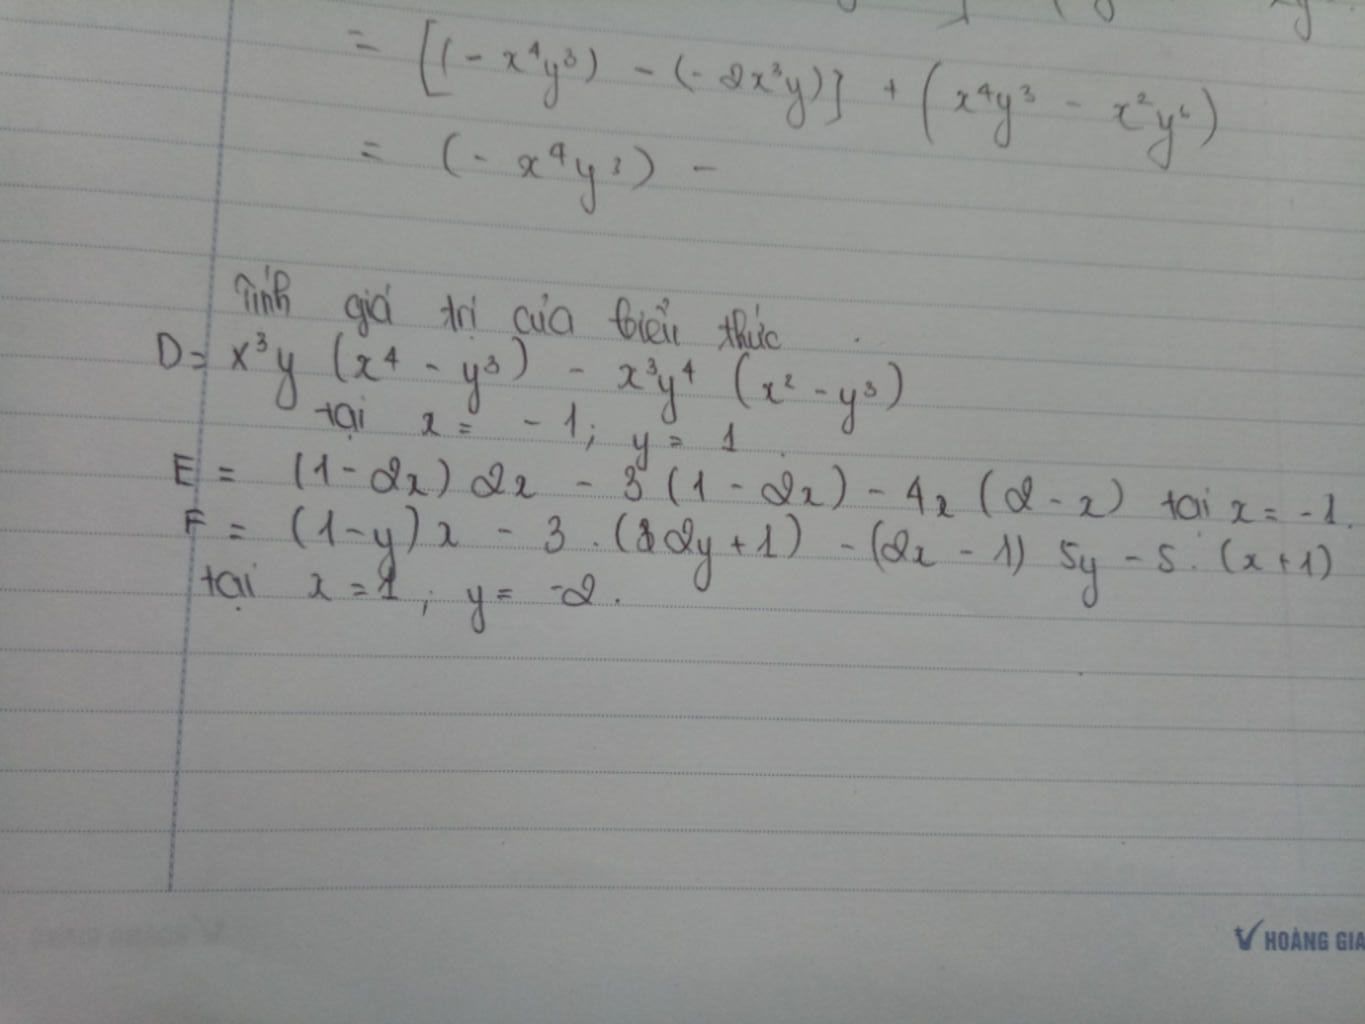 = [(- x⁴y³) - (- 2x³y)] + (x⁴y³ - x²y⁶)
= (- x⁴y³) -
Tính giá trị của biểu thức
D = x³y (x⁴ - y³) - x³y⁴ (x² - y³)
tại x = - 1; y = 1
E = (1 - 2x) 2x - 3 (1 - 2x) - 4x (2 - x) tại x = -1.
F = (1-y) x - 3 . (2y + 1) - (2x - 1) 5y - 5. (x+1)
tại x = 1; y = -2.
HOÀNG GIA